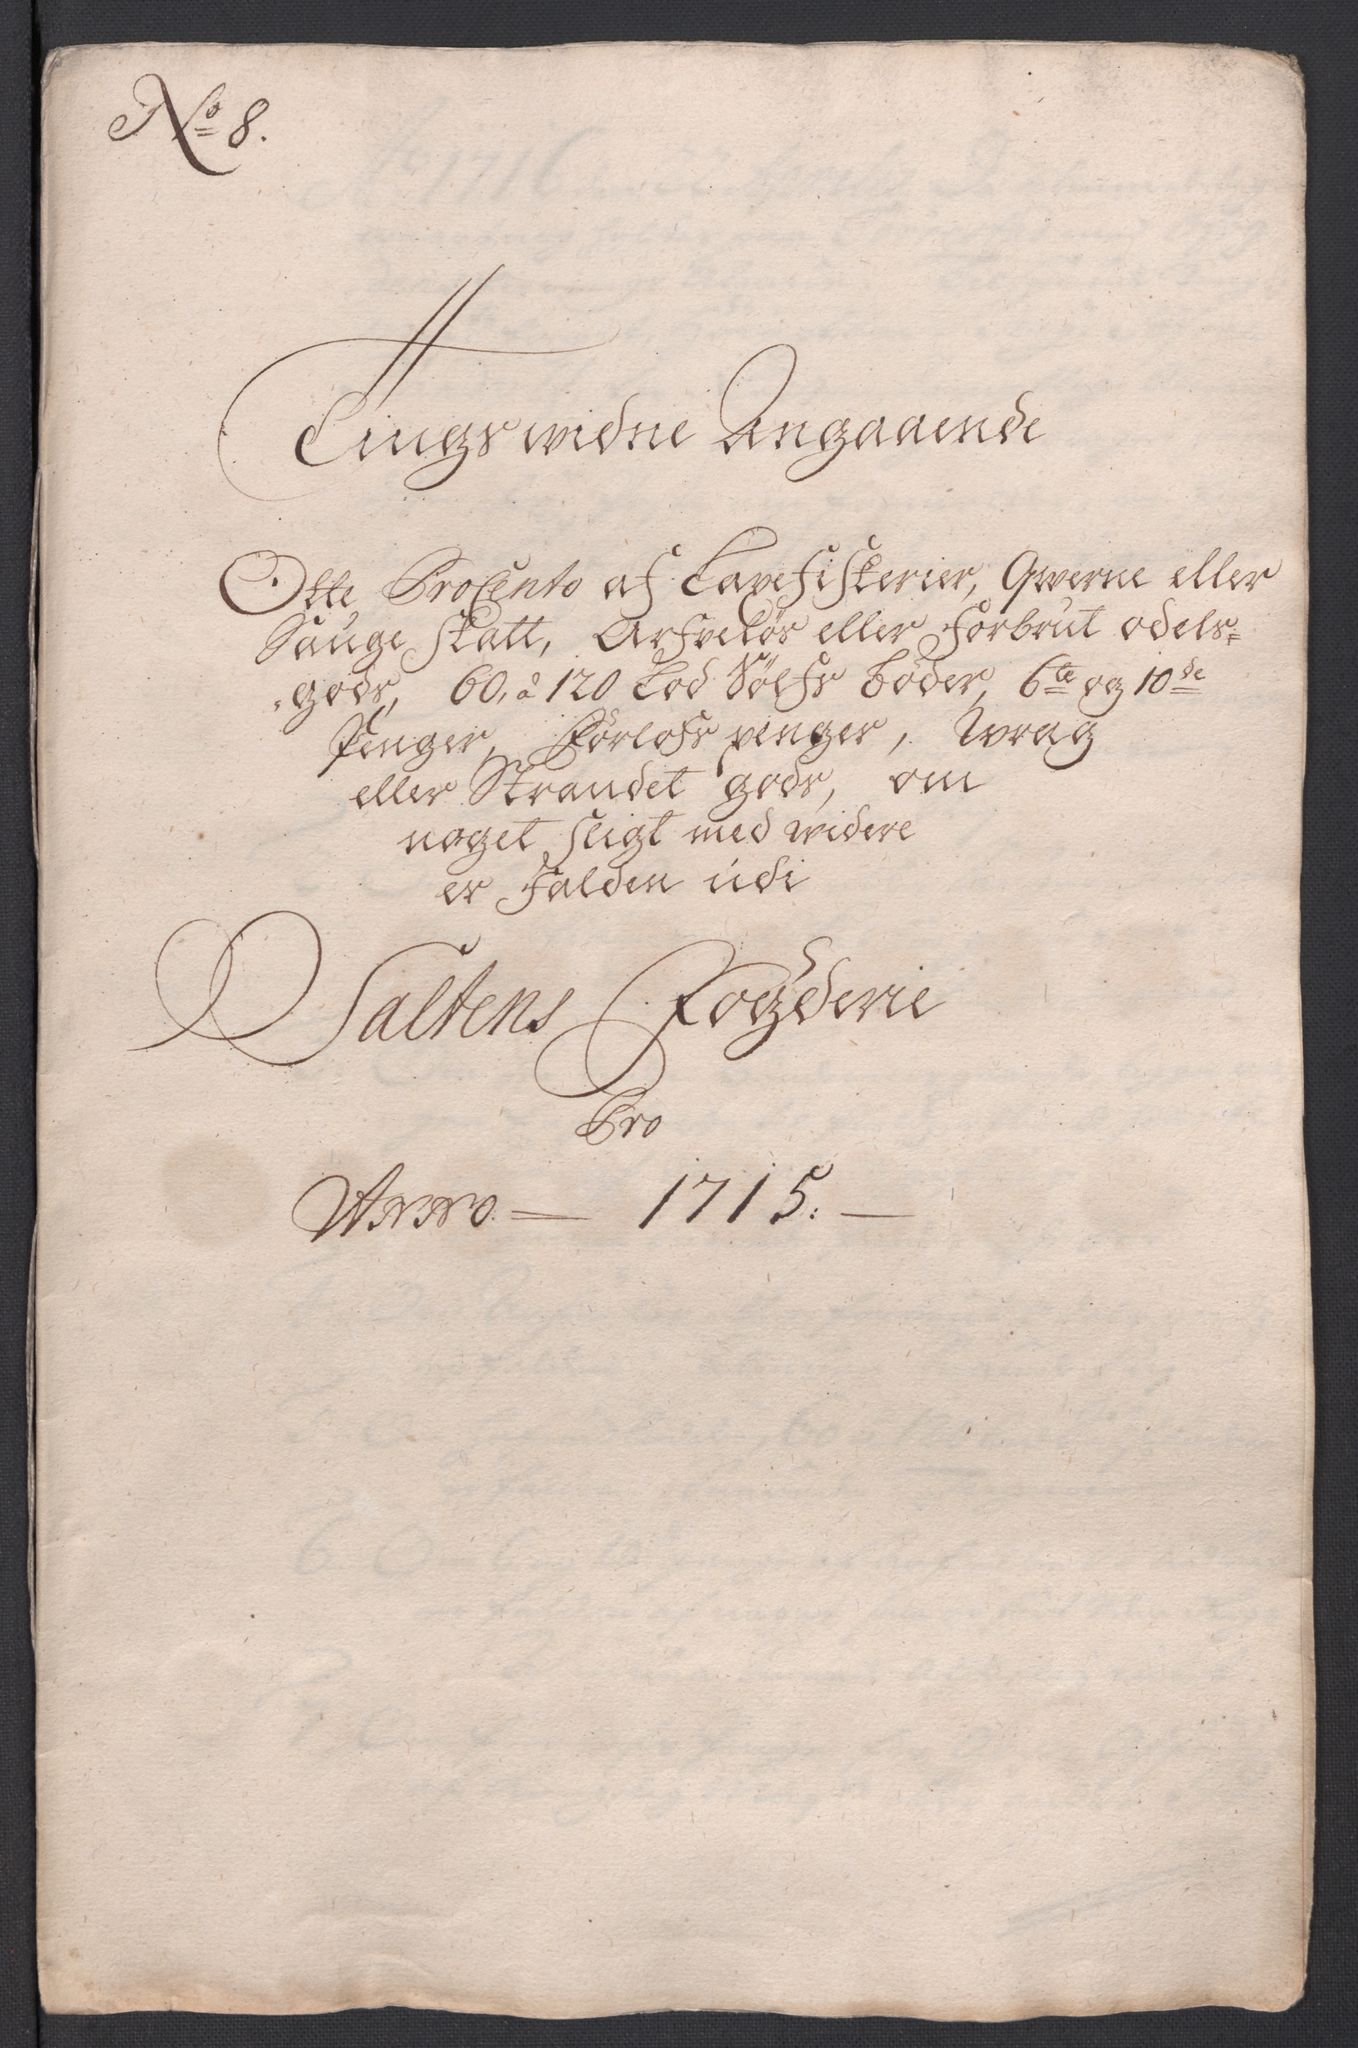 No 8.
Tingswidne Angaaende
Otte ProCento af Laxefiskerier, Qwerne eller
Sauge skatt, Arfveløs eller Forbrut odels-
gods, 60, à 120 Lod Sølfs bøder, 6te og 10de
Penger, Førlofs penger, Wrag
eller Strandet gods, om
noget sligt med widere
er falden udi
Saltens Fogderie
Pro
Anno 1715.